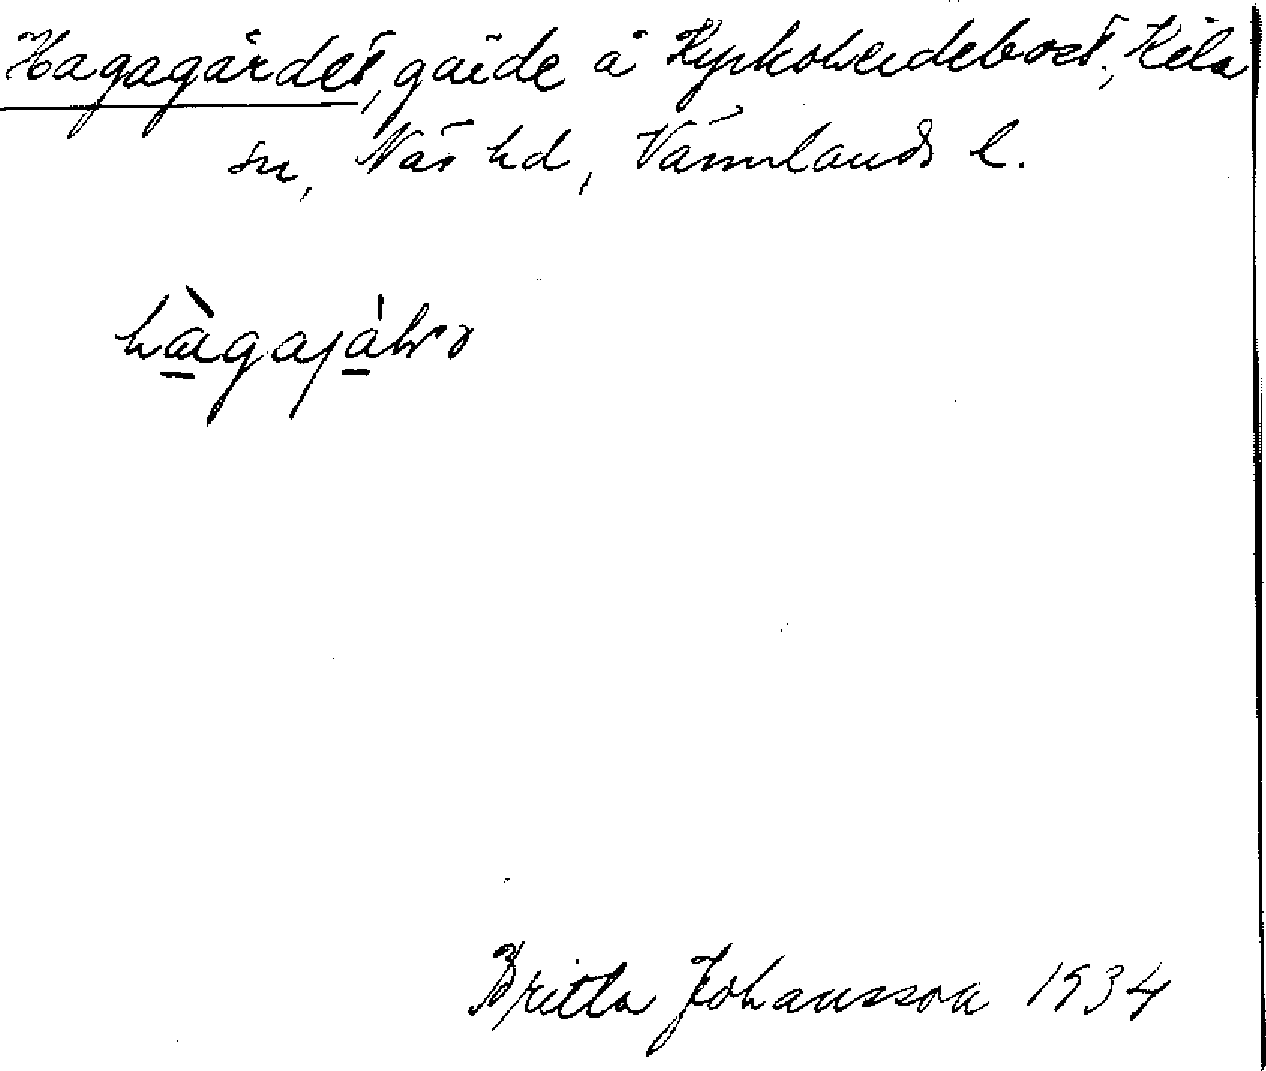 Hagagärdet, gärde å Kyrkoherdebost., Kila
sn, Näs hd, Värmlands l.
Britta Johansson 1934